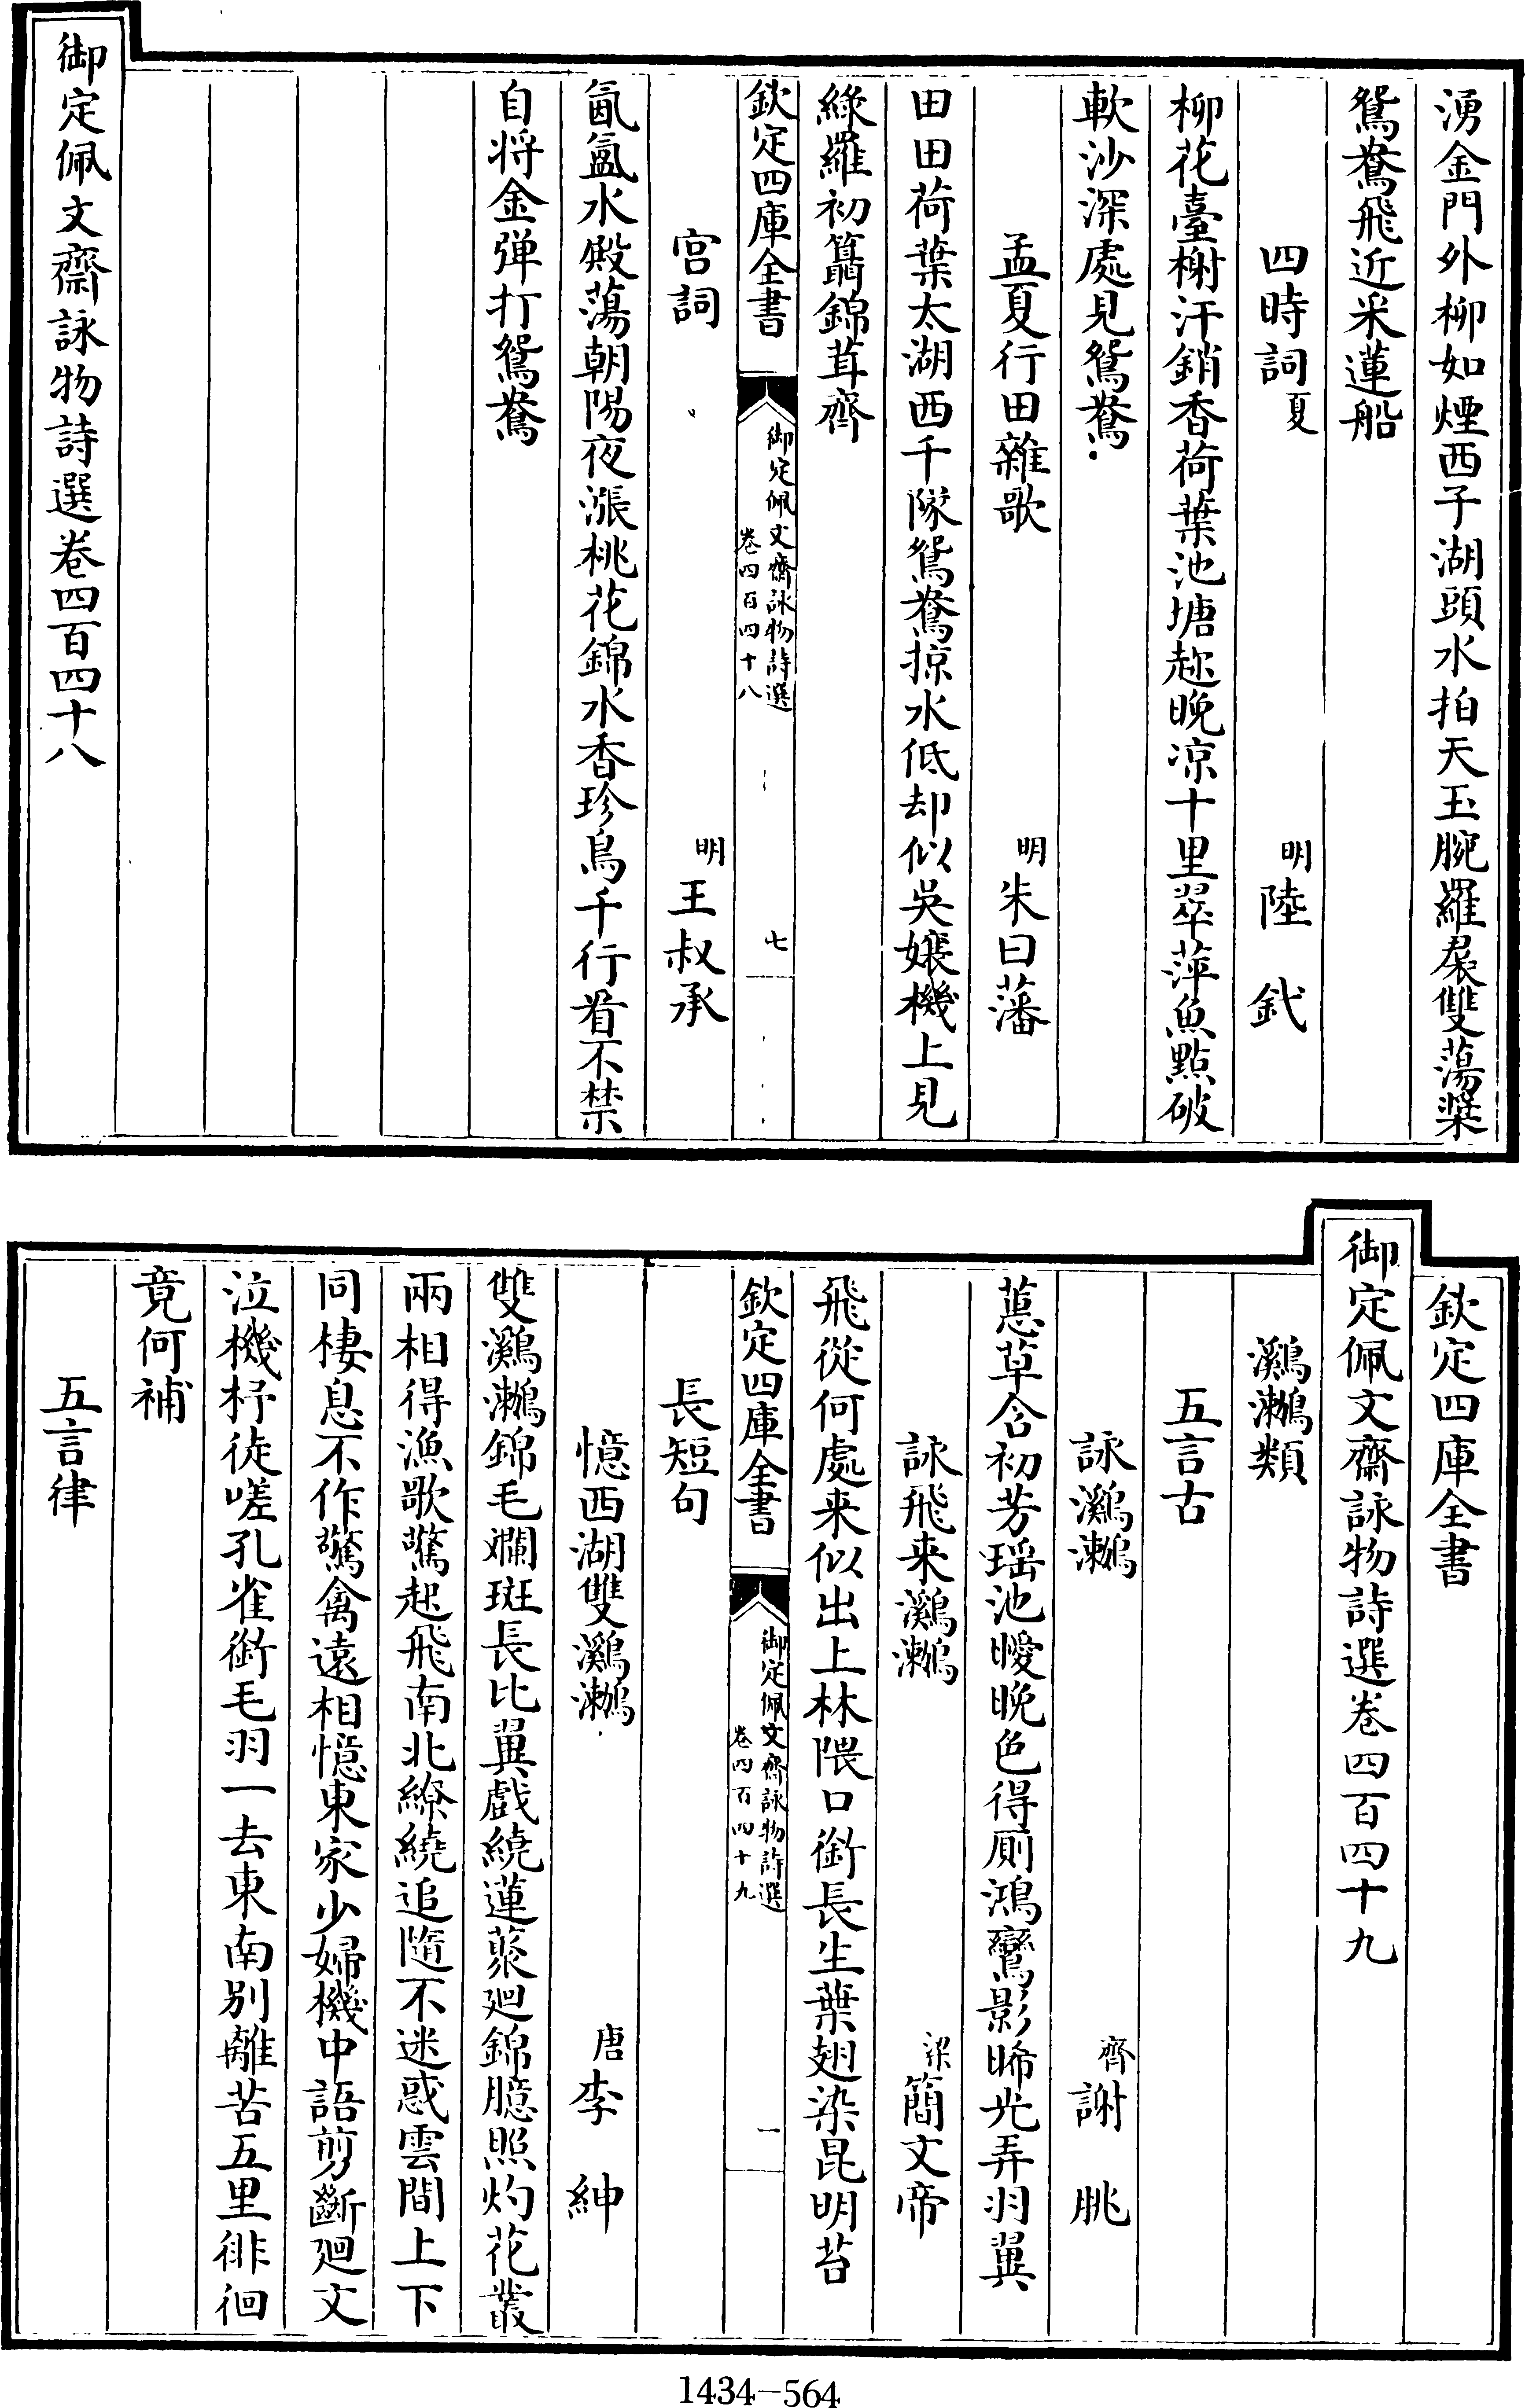 湧金門外柳如煙西子湖頭水拍天玉腕羅裙雙蕩槳
鴛鴦飛近采蓮船
四時詞夏 明陸 釴
柳花臺榭汗銷香荷葉池塘趂晚凉十里翠萍魚點破
軟沙深處見鴛鴦
孟夏行田雜歌 明朱曰藩
田田荷葉太湖西千隊鴛鴦掠水低却似吳孃機上見
綠羅初罥錦茸齊
欽定四庫全書 御定佩文齋詠物詩選 卷四百四十八 七
宫詞 明王叔承
氤氳水殿蕩朝陽夜漲桃花錦水香珍鳥千行看不禁
自将金彈打鴛鴦
御定佩文齋詠物詩選卷四百四十八
欽定四庫全書
御定佩文齋詠物詩選卷四百四十九
鸂鶒類
五言古
詠鸂鶒 齊謝 朓
蕙草含初芳瑶池曖晚色得厠鴻鸞影晞光弄羽翼
詠飛来鸂鶒 梁簡文帝
飛從何處来似出上林隈口銜長生葉翅染昆明苔
欽定四庫全書 御定佩文齋詠物詩選 卷四百四十九 一
長短句
憶西湖雙鸂鶒 唐李 紳
雙鸂鶒錦毛斕斑長比翼戲繞蓮蘂廻錦臆照灼花叢
兩相得漁歌驚起飛南北繚繞追隨不迷惑雲間上下
同棲息不作驚禽遠相憶東家少婦機中語剪斷廻文
泣機杼徒嗟孔雀銜毛羽一去東南别離苦五里徘徊
竟何補
五言律
1434-564